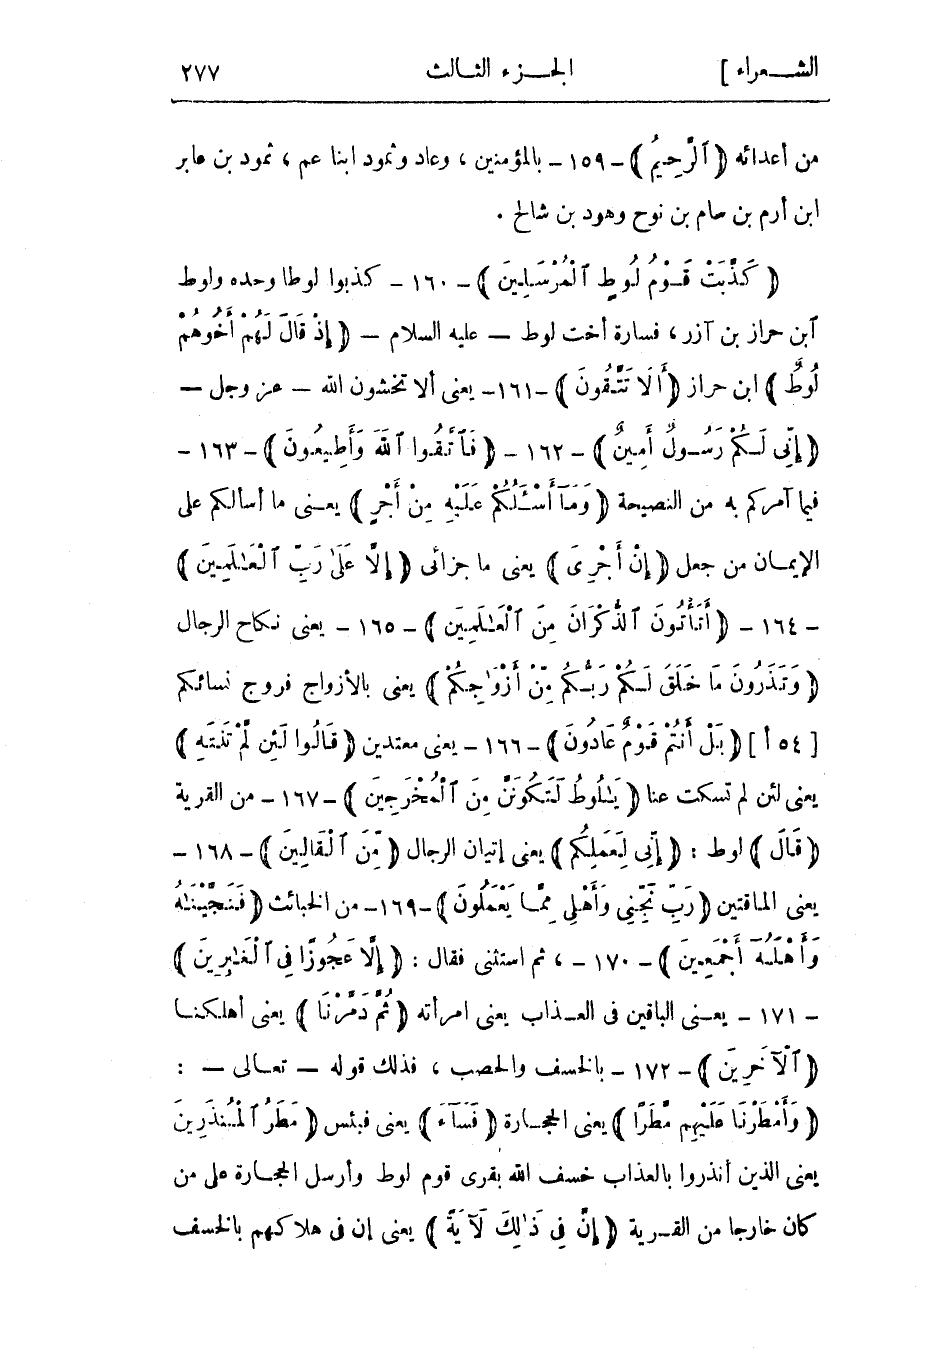 الشعراء ] الجزء الثالث ٢٧٧
من أعدائه ﴿ ٱلرَّحِيمُ ﴾ - ١٥٩ - بالمؤمنين ، وعاد وثمود ابنا عم ، ثمود بن عابر
ابن أرم بن سام بن نوح وهود بن شالخ .
﴿ كَذَّبَتْ قَوْمُ لُوطٍ ٱلْمُرْسَلِينَ ﴾ - ١٦٠ - كذبوا لوطا وحده ولوط
ٱبن حراز بن آزر ، فسارة أخت لوط — عليه السلام — ﴿ إِذْ قَالَ لَهُمْ أَخُوهُمْ
لُوطٌ ﴾ ابن حراز ﴿ أَلَا تَتَّقُونَ ﴾ - ١٦١ - يعنى ألا تخشون الله — عز وجل —
﴿ إِنِّى لَكُمْ رَسُولٌ أَمِينٌ ﴾ - ١٦٢ - ﴿ فَٱتَّقُوا ٱللَّهَ وَأَطِيعُونَ ﴾ - ١٦٣ -
فيما آمركم به من النصيحة ﴿ وَمَآ أَسْـَٔلُكُمْ عَلَيْهِ مِنْ أَجْرٍ ﴾ يعنى ما أسألكم على
الإيمان من جعل ﴿ إِنْ أَجْرِىَ ﴾ يعنى ما جزائى ﴿ إِلَّا عَلَىٰ رَبِّ ٱلْعَـٰلَمِينَ ﴾
- ١٦٤ - ﴿ أَتَأْتُونَ ٱلذُّكْرَانَ مِنَ ٱلْعَـٰلَمِينَ ﴾ - ١٦٥ - يعنى نكاح الرجال
﴿ وَتَذَرُونَ مَا خَلَقَ لَكُمْ رَبُّكُم مِّنْ أَزْوَٰجِكُمْ ﴾ يعنى بالأزواج فروج نسائكم
[ ٥٤ أ ] ﴿ بَلْ أَنتُمْ قَوْمٌ عَادُونَ ﴾ - ١٦٦ - يعنى معتدين ﴿ قَالُوا لَئِن لَّمْ تَنتَهِ ﴾
يعنى لئن لم تسكت عنا ﴿ يَـٰلُوطُ لَتَكُونَنَّ مِنَ ٱلْمُخْرَجِينَ ﴾ - ١٦٧ - من القرية
﴿ قَالَ ﴾ لوط : ﴿ إِنِّى لِعَمَلِكُم ﴾ يعنى إتيان الرجال ﴿ مِّنَ ٱلْقَالِينَ ﴾ - ١٦٨ -
يعنى الماقتين ﴿ رَبِّ نَجِّنِى وَأَهْلِى مِمَّا يَعْمَلُونَ ﴾ - ١٦٩ - من الخبائث ﴿ فَنَجَّيْنَـٰهُ
وَأَهْلَهُۥٓ أَجْمَعِينَ ﴾ - ١٧٠ - ، ثم استثنى فقال : ﴿ إِلَّا عَجُوزًا فِى ٱلْغَـٰبِرِينَ ﴾
- ١٧١ - يعنى الباقين فى العذاب يعنى امرأته ﴿ ثُمَّ دَمَّرْنَا ﴾ يعنى أهلكنا
﴿ ٱلْآخَرِينَ ﴾ - ١٧٢ - بالخسف والحصب ، فذلك قوله — تعالى — :
﴿ وَأَمْطَرْنَا عَلَيْهِم مَّطَرًا ﴾ يعنى الحجارة ﴿ فَسَآءَ ﴾ يعنى فبئس ﴿ مَطَرُ ٱلْمُنذَرِينَ
يعنى الذين أنذروا بالعذاب خسف الله بقرى قوم لوط وأرسل الحجارة على من
كان خارجا من القرية ﴿ إِنَّ فِى ذَٰلِكَ لَآيَةً ﴾ يعنى إن فى هلاكهم بالخسف